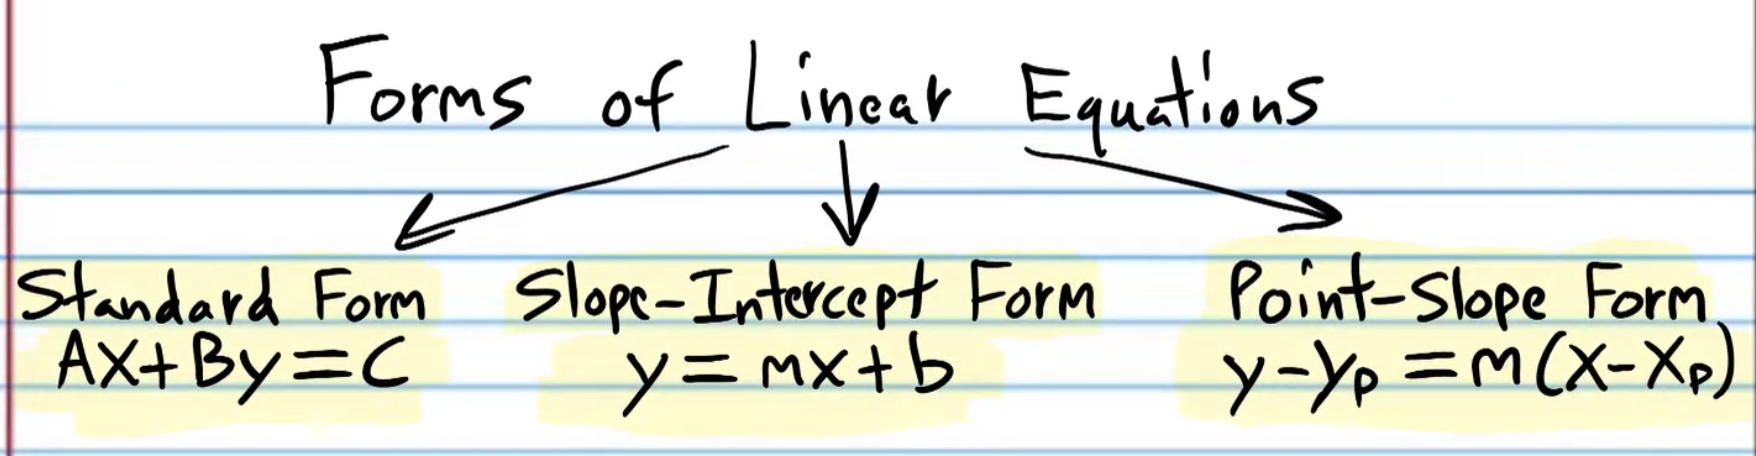 Forms of Linear Equations
Standard Form
Ax+By=C
Slope-Intercept Form
y=mx+b
Point-Slope Form
y-yₚ=m(x-xₚ)